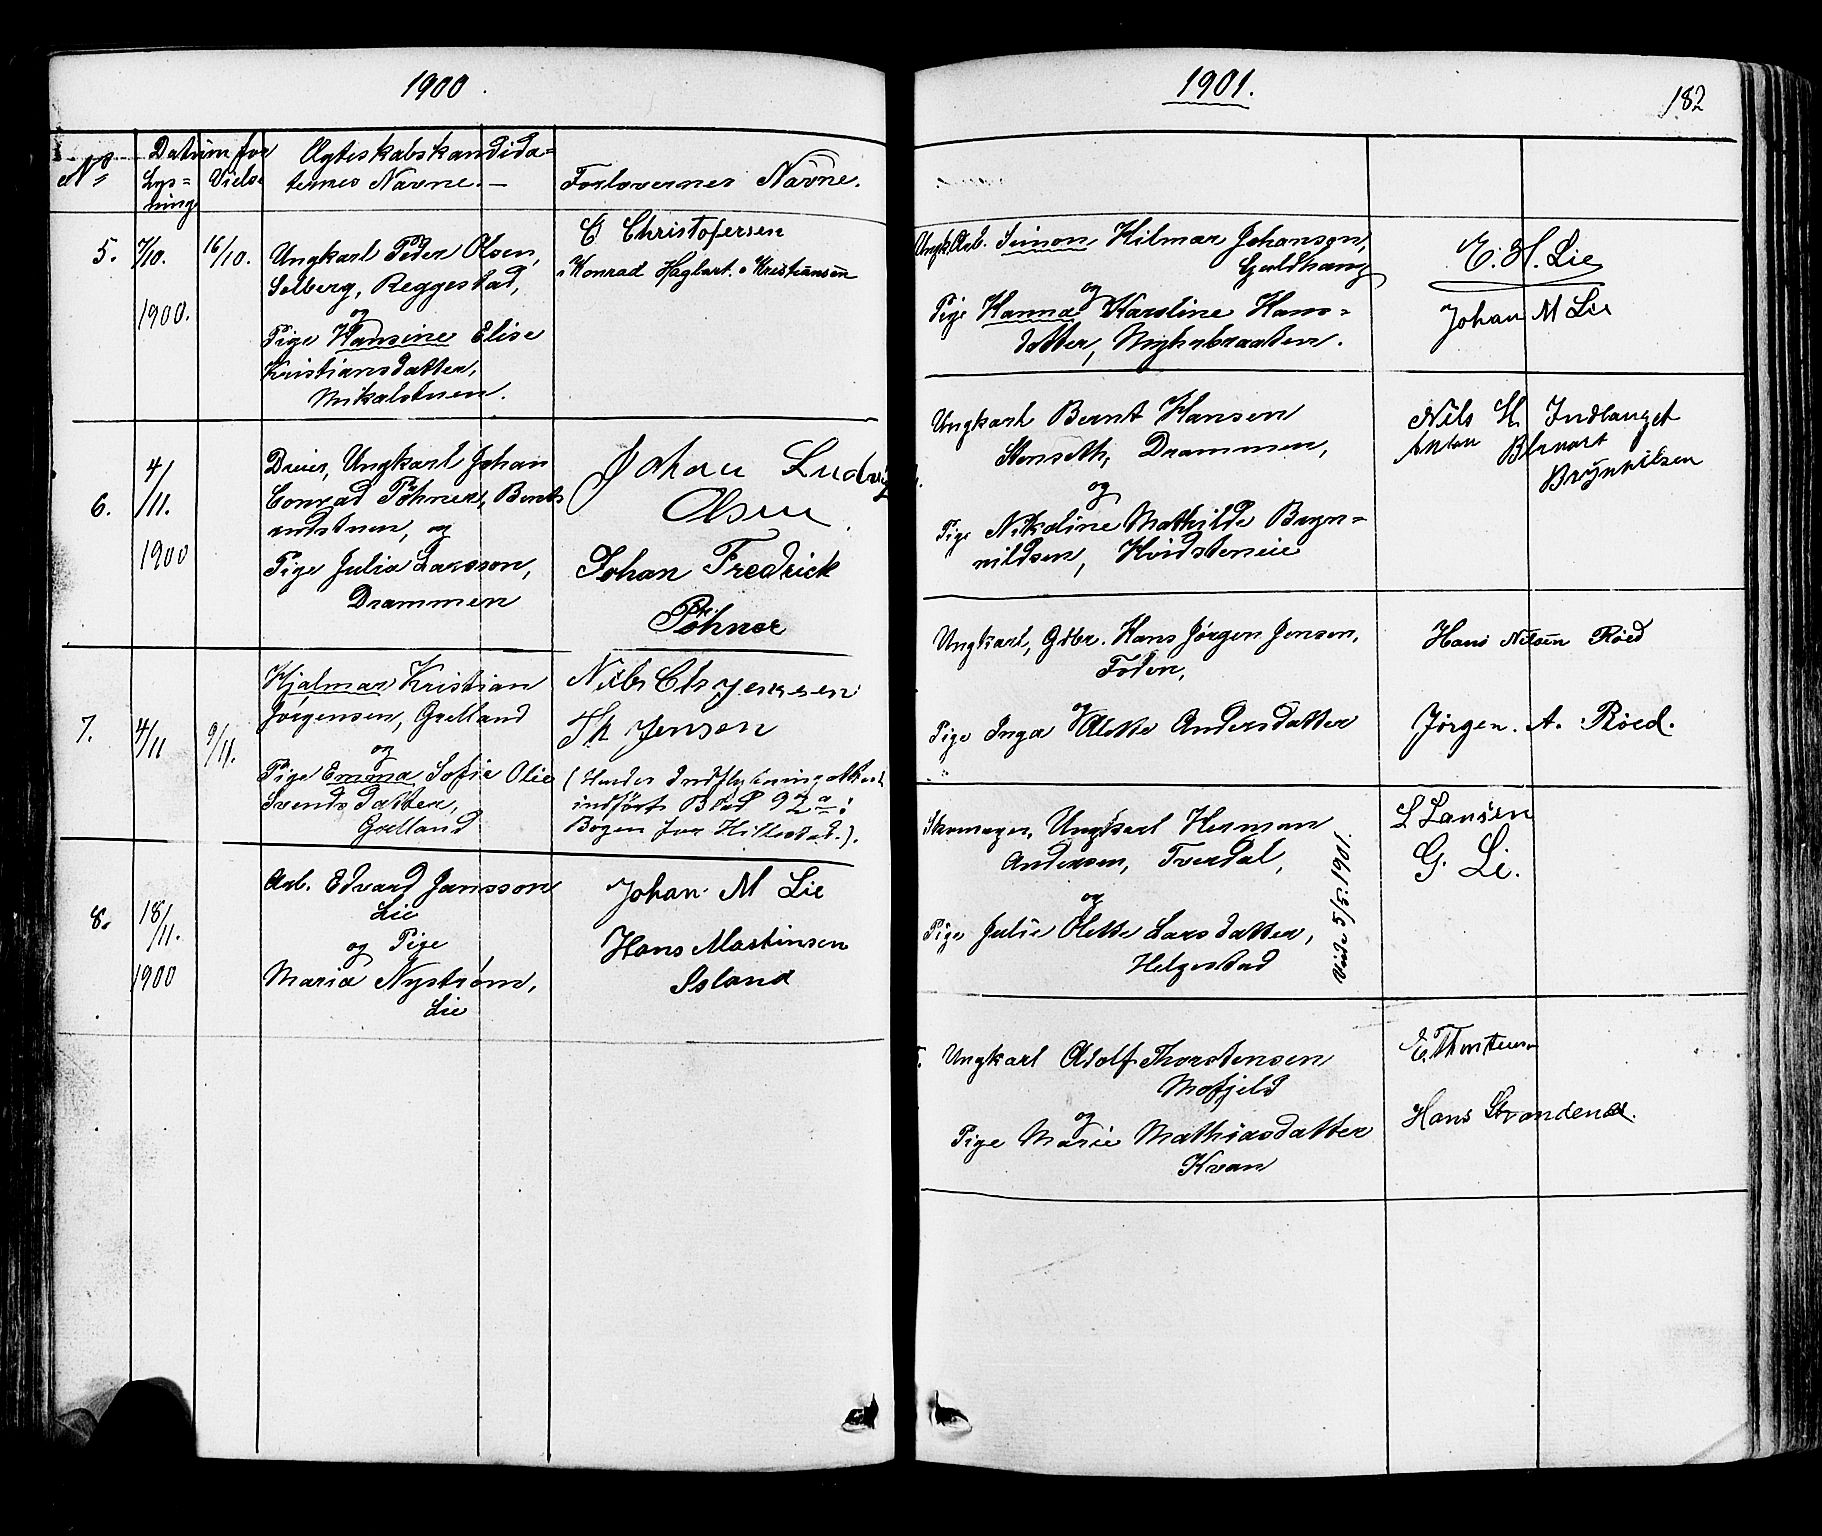 1900.
No Datum for Ægteskabskandida=
Lys= Vielse ternes Navne. — Forlovernes Navne.
ning
5. 7/10. 16/10. Ungkarl Peder Olsen,
Solberg, Reggestad,
1900. og
Pige Hansine Elise
Kristiansdatter,
Mikalstuen.
C Christofersen
Konrad Hagbart. Kristiansen
6. 4/11. 1900
Dreier, Ungkarl Johan
Conrad Pöhner, Bent
andstuen, og
Pige Julia Larsson,
Drammen
Johan Ludvig
Olsen.
Johan Fredrick
Pöhner
7. 4/11 9/11.
Hjalmar Kristian
Jørgensen, Grelland
og
Pige Emma Sofie Olie
Svendsdatter,
Grelland
Nils Chr Jensen
Th Jensen
(Hendes Indflytningsattest
indført Blad 92 a i
Bogen for Hillestad.).
8. 18/11. 1900
Arb. Edvard Jansson
Lie
og Pige
Maria Nystrøm,
Lie
Johan M Lie
Hans Martinsen
Island
1901.
182
Ungk. Arb. Simon Hilmar Johansen,
og
Pige Hanna Karoline Hans=
datter, Myhrbraaten.
E. H. Lie
Johan M Lie
Ungkarl Bernt Hansen
Stenseth, Drammen,
og
Pige Nikoline Mathilde Bryn=
nildsen, Hvidsteneie
Nils H. Indlauget
Anton
Brynnilsen
Ungkarl, Gdbr. Hans Jørgen Jensen,
Foden,
og
Pige Inga Alette Andersdatter
Hans Nilsen Røed
Jørgen. A. Røed.
Skomager, Ungkarl Herman
Andersen, Tverdal,
og
Pige Julie Olette Larsdatter,
Helgestad
Viede 5/5. 1901.
L Larsen
G. Li.
Ungkarl Adolf Thorstensen
Mofjeld
og
Pige Marie Mathiasdatter
Kvan
E. Thorstensen
Hans Strandene.